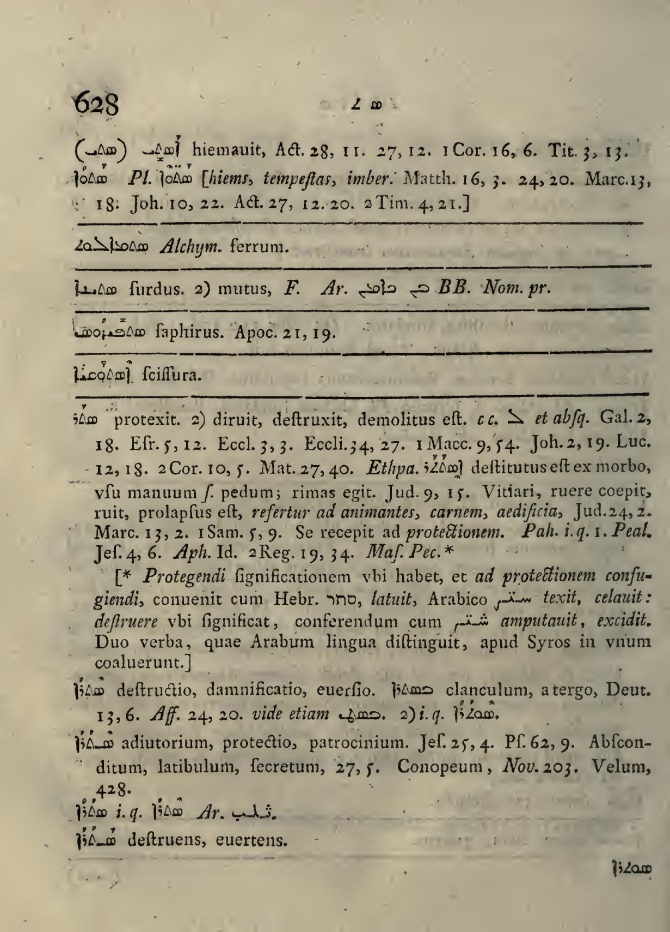 628 ܣ ܬ
(ܣܬܝ) ܐܣܬܝ hiemauit, Act. 28, 11. 27, 12. 1 Cor. 16, 6. Tit. 3, 13.
ܣܬܘܐ Pl. ܣܬܘܐ [hiems, tempeſtas, imber. Matth. 16, 3. 24, 20. Marc. 13,
18. Joh. 10, 22. Act. 27, 12. 20. 2 Tim. 4, 21.]
Alchym. ferrum.
ſurdus. 2) mutus, F. Ar. BB. Nom. pr.
ſaphirus. Apoc. 21, 19.
ſciſſura.
ܣܬܪ protexit. 2) diruit, deſtruxit, demolitus eſt. cc. ܠ et abſq. Gal. 2,
18. Eſr. 5, 12. Eccl. 3, 3. Eccli. 34, 27. 1 Macc. 9, 54. Joh. 2, 19. Luc.
12, 18. 2 Cor. 10, 5. Mat. 27, 40. Ethpa. ܐܣܬܬܪ deſtitutus eſt ex morbo,
vſu manuum ſ. pedum; rimas egit. Jud. 9, 15. Vitiari, ruere coepit,
ruit, prolapſus eſt, refertur ad animantes, carnem, aedificia, Jud. 24, 2.
Marc. 13, 2. 1 Sam. 5, 9. Se recepit ad protectionem. Pah. i. q. 1. Peal.
Jeſ. 4, 6. Aph. Id. 2 Reg. 19, 34. Maſ. Pec.*
[* Protegendi ſignificationem vbi habet, et ad protectionem confu-
giendi, conuenit cum Hebr. סתר, latuit, Arabico ستر texit, celauit:
deſtruere vbi ſignificat, conferendum cum شتر amputauit, excidit.
Duo verba, quae Arabum lingua diſtinguit, apud Syros in vnum
coaluerunt.]
ܣܬܪܐ deſtructio, damnificatio, euerſio. ܒܣܬܪܐ clanculum, a tergo, Deut.
13, 6. Aſſ. 24, 20. vide etiam 2) i. q. ܣܘܬܪܐ.
ܣܬܪܐ adiutorium, protectio, patrocinium. Jeſ. 25, 4. Pſ. 62, 9. Abſcon-
ditum, latibulum, ſecretum, 27, 5. Conopeum, Nov. 203. Velum,
428.
ܣܬܪܐ i. q. ܣܬܪܐ Ar.
ܣܬܪܐ deſtruens, euertens.
ܣܘܬܪܐ